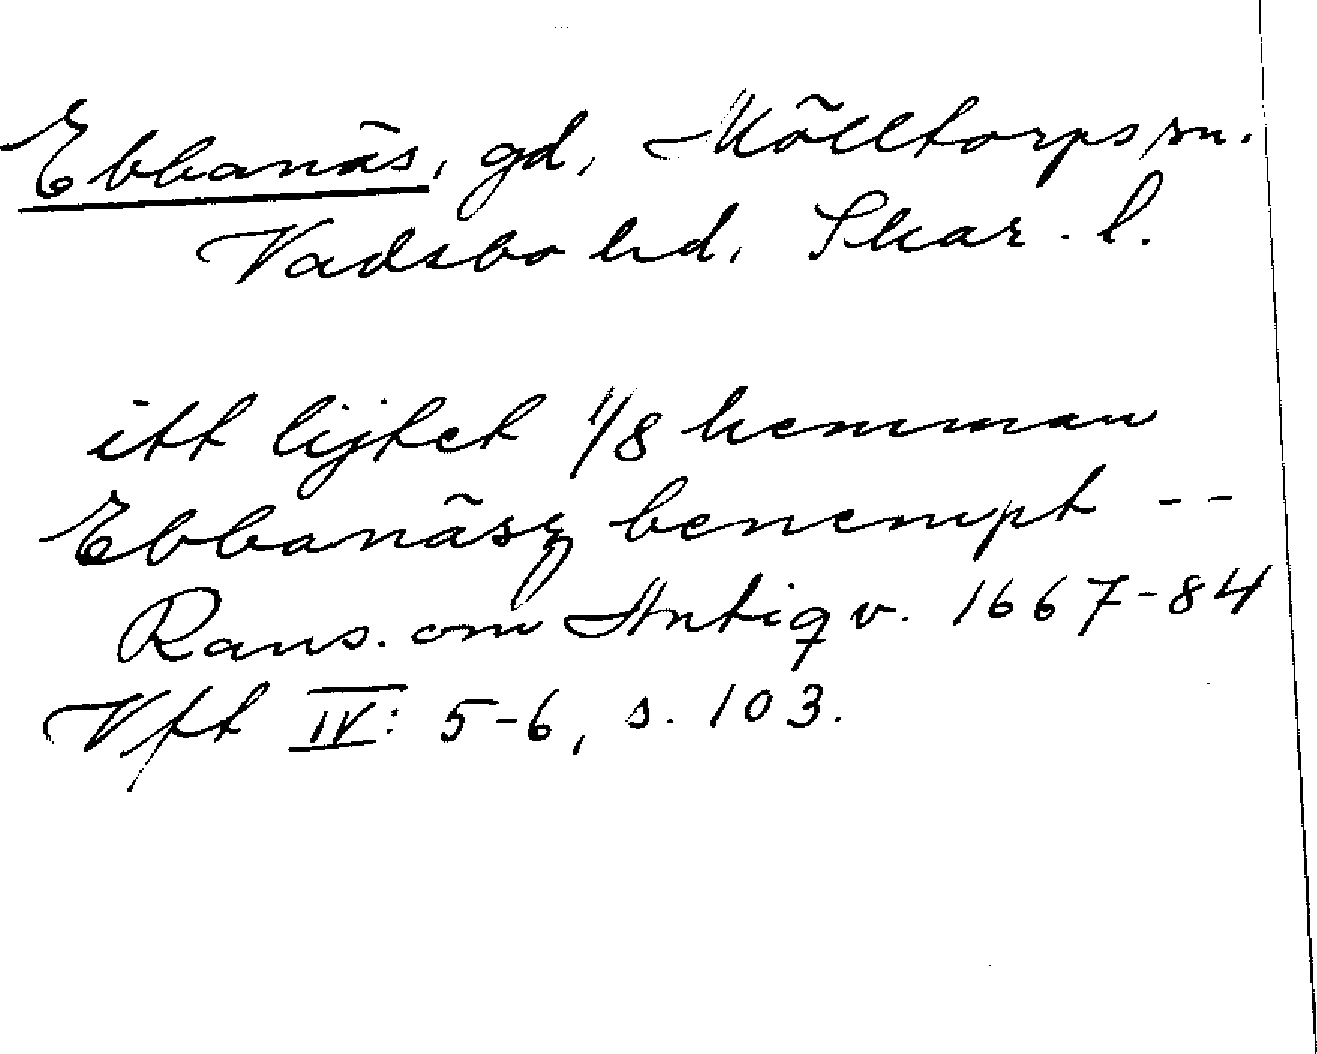 Ebbanäs, gd, Mölltorps sn.
Vadsbo hd, Skar. l.
itt lijtet 1/8 hemman
Ebbanäsz benempt --
Rans. om Antiqv. 1667-84
Vft IV: 5-6, s. 103.